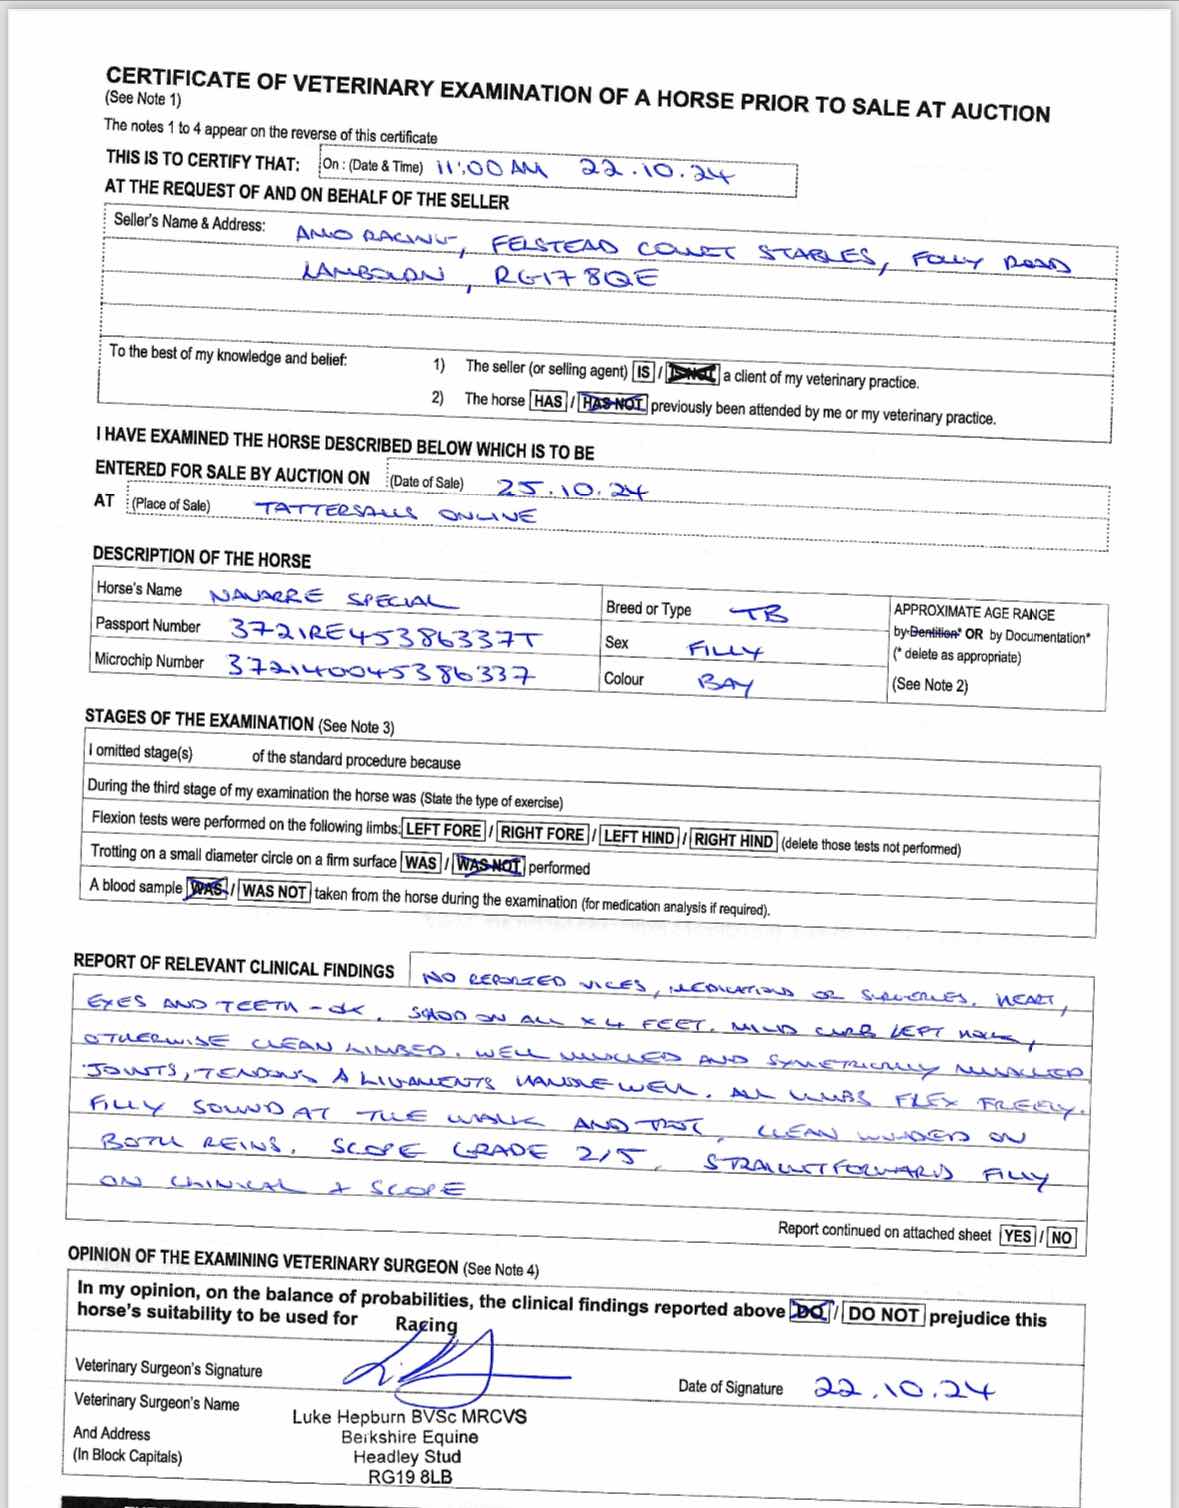 CERTIFICATE OF VETERINARY EXAMINATION OF A HORSE PRIOR TO SALE AT AUCTION
(See Note 1)
The notes 1 to 4 appear on the reverse of this certificate
THIS IS TO CERTIFY THAT: On : (Date & Time) 11:00 AM 22.10.24
AT THE REQUEST OF AND ON BEHALF OF THE SELLER
Seller's Name & Address: AMO RACING, FELSTEAD COURT STABLES, FOLLY ROAD
LAMBOURN, RG17 8QE
To the best of my knowledge and belief: 1) The seller (or selling agent) IS / IS NOT a client of my veterinary practice.
2) The horse HAS / HAS NOT previously been attended by me or my veterinary practice.
I HAVE EXAMINED THE HORSE DESCRIBED BELOW WHICH IS TO BE
ENTERED FOR SALE BY AUCTION ON (Date of Sale) 25.10.24
AT (Place of Sale) TATTERSALLS ONLINE
DESCRIPTION OF THE HORSE
Horse's Name NAVARRE SPECIAL Breed or Type TB APPROXIMATE AGE RANGE
Passport Number 372IRE45386337T Sex FILLY by Dentition* OR by Documentation*
(* delete as appropriate)
Microchip Number 372140045386337 Colour BAY (See Note 2)
STAGES OF THE EXAMINATION (See Note 3)
I omitted stage(s) of the standard procedure because
During the third stage of my examination the horse was (State the type of exercise)
Flexion tests were performed on the following limbs: LEFT FORE / RIGHT FORE / LEFT HIND / RIGHT HIND (delete those tests not performed)
Trotting on a small diameter circle on a firm surface WAS / WAS NOT performed
A blood sample WAS / WAS NOT taken from the horse during the examination (for medication analysis if required).
REPORT OF RELEVANT CLINICAL FINDINGS NO REPORTED VICES, MEDICATIONS OR SURGERIES. HEART,
EYES AND TEETH - OK. SHOD ON ALL X 4 FEET. MILD CURB LEFT HOCK,
OTHERWISE CLEAN LIMBED. WELL MUSCLED AND SYMETRICALLY MUSCLED
JOINTS, TENDONS & LIGAMENTS HANDLE WELL. ALL LIMBS FLEX FREELY.
FILLY SOUND AT THE WALK AND TROT, CLEAN WINDED ON
BOTH REINS. SCOPE GRADE 2/5. STRAIGHTFORWARD FILLY
ON CLINICAL + SCOPE
Report continued on attached sheet YES / NO
OPINION OF THE EXAMINING VETERINARY SURGEON (See Note 4)
In my opinion, on the balance of probabilities, the clinical findings reported above DO / DO NOT prejudice this
horse's suitability to be used for Racing
Veterinary Surgeon's Signature Date of Signature 22.10.24
Veterinary Surgeon's Name Luke Hepburn BVSc MRCVS
And Address Berkshire Equine
(In Block Capitals) Headley Stud
RG19 8LB